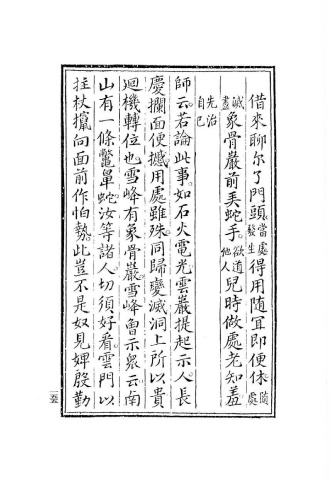 借來聊尔了門頭當處發生得用隨宜即便休隨處
滅盡象骨巖前弄蛇手欲道他人兒時做處老知羞
先治自己
師云若論此事如石火電光雲巖提起示人長
慶攔面便撼用處雖殊同歸變滅洞上所以貴
迴機轉位也雪峰有象骨巖雪峰嘗示衆云南
山有一條鼈鼻蛇汝等諸人切須好看雲門以
拄杖攛向面前作怕勢此豈不是奴見婢殷勤